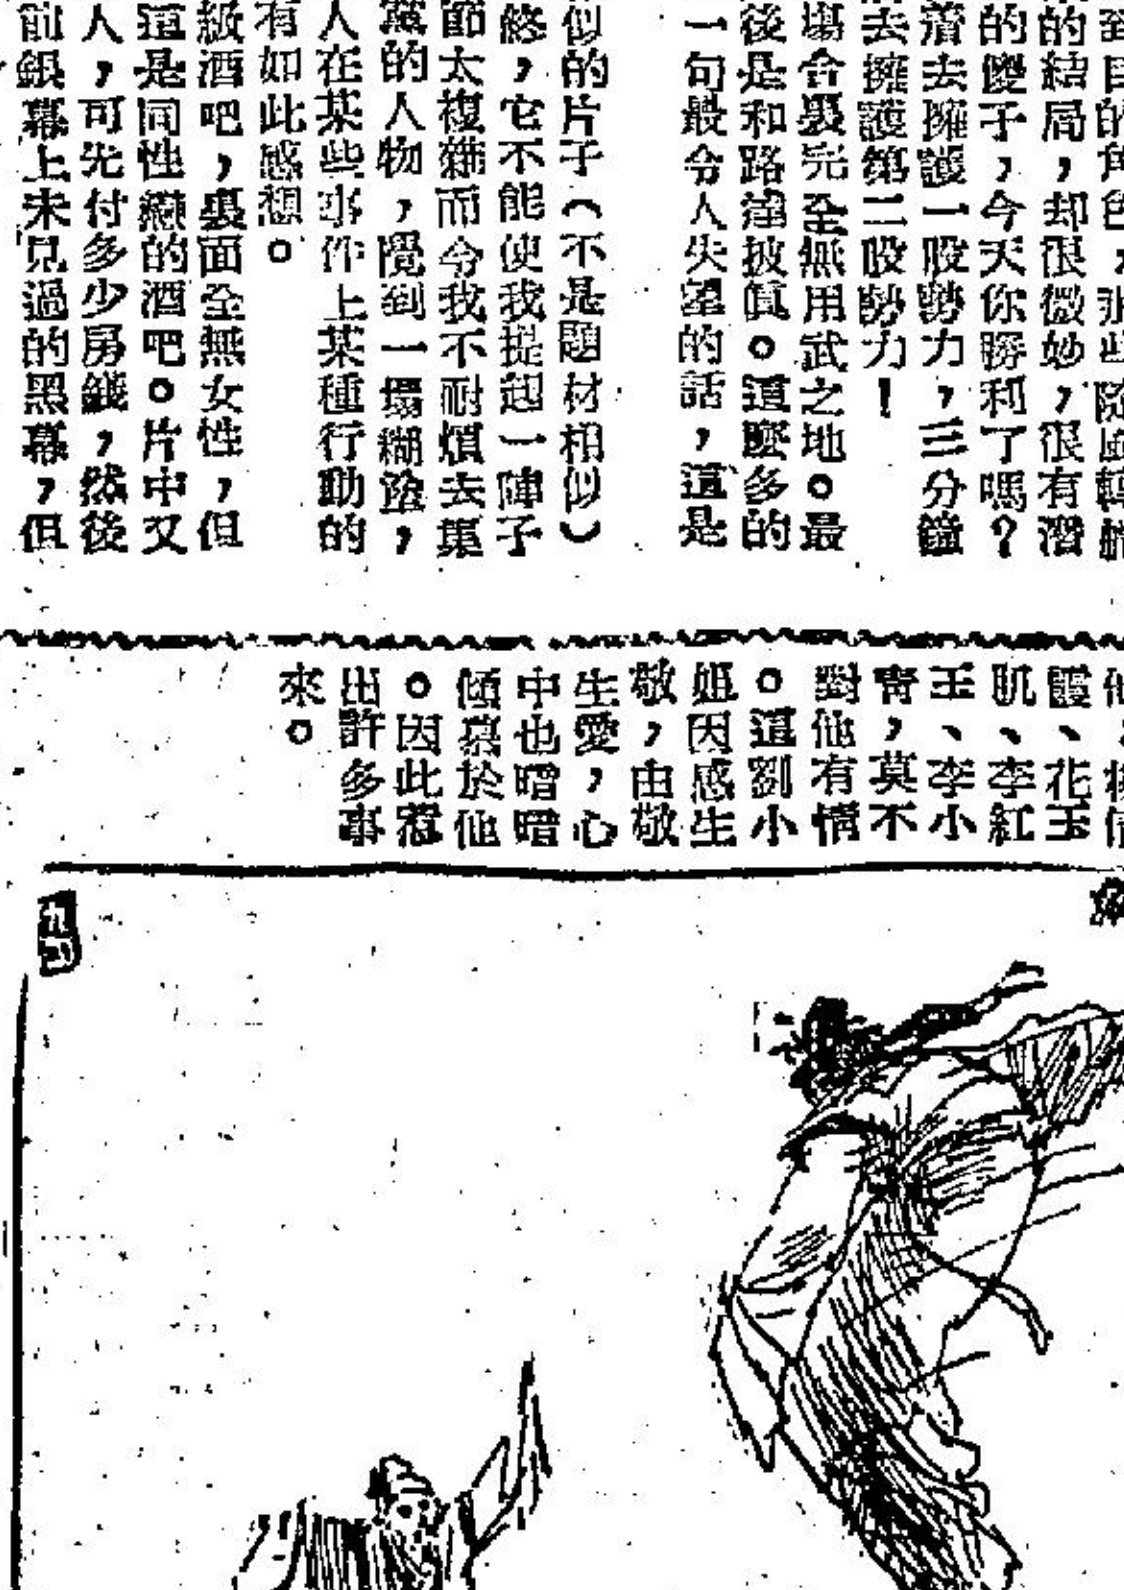 到目的角色,
的結局,却很微妙,很有潛
的傻子,今天你勝利了嗎?
着去擁護一股勢力,三分鐘
去擁護第二股勢力!
塲合裏完全無用武之地。最
後是和路達披賈。這麽多的
一句最令人失望的話,這是
似的片子(不是題材相似)
修,它不能使我提起一陣子
節太複雜而令我不耐煩去集
黨的人物,覺到一塌糊塗,
人在某些事件上某種行動的
有如此感想。
級酒吧,裏面全無女性,但
這是同性戀的酒吧。片中又
人,可先付多少房錢,然後
前銀幕上未見過的黑幕,但
霞、花玉
肌、李紅
玉、李小
青,莫不
對他有情
。這劉小
姐因感生
敬,由敬
生愛,心
中也暗暗
傾慕於他
。因此惹
出許多事
來。